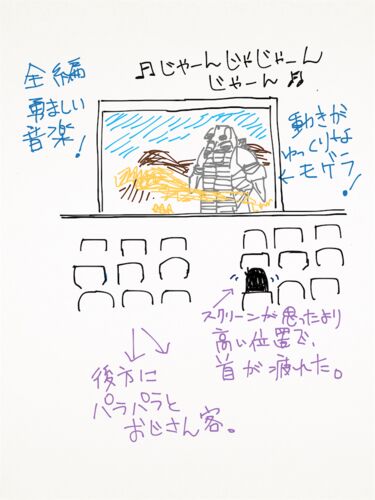 ♬じゃーんじゃじゃーん
じゃーん♬
全編
勇ましい
音楽!
動きが
ゆっくりな
←モゲラ!
スクリーンが思ったより
高い位置で、
首が疲れた。
後方に
パラパラと
おじさん客。